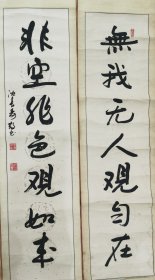 無我无人观自在
非空非色观如来